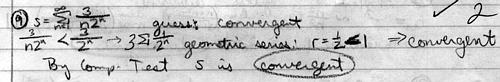 ✓ 2
⑨ S = ∞∑n=1 3/n2ⁿ guess: convergent
3/n2ⁿ < 3/2ⁿ → 3∑ 1/2ⁿ geometric series: r = 1/2 < 1 ⇒ convergent
By Comp. Test S is convergent